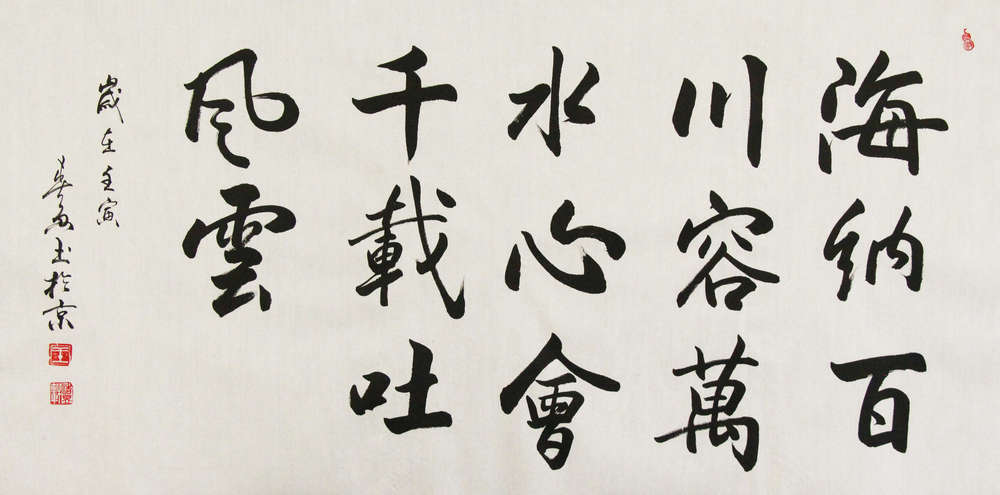 海納百
川容萬
水心會
千載吐
風雲
歲在壬寅
書於京